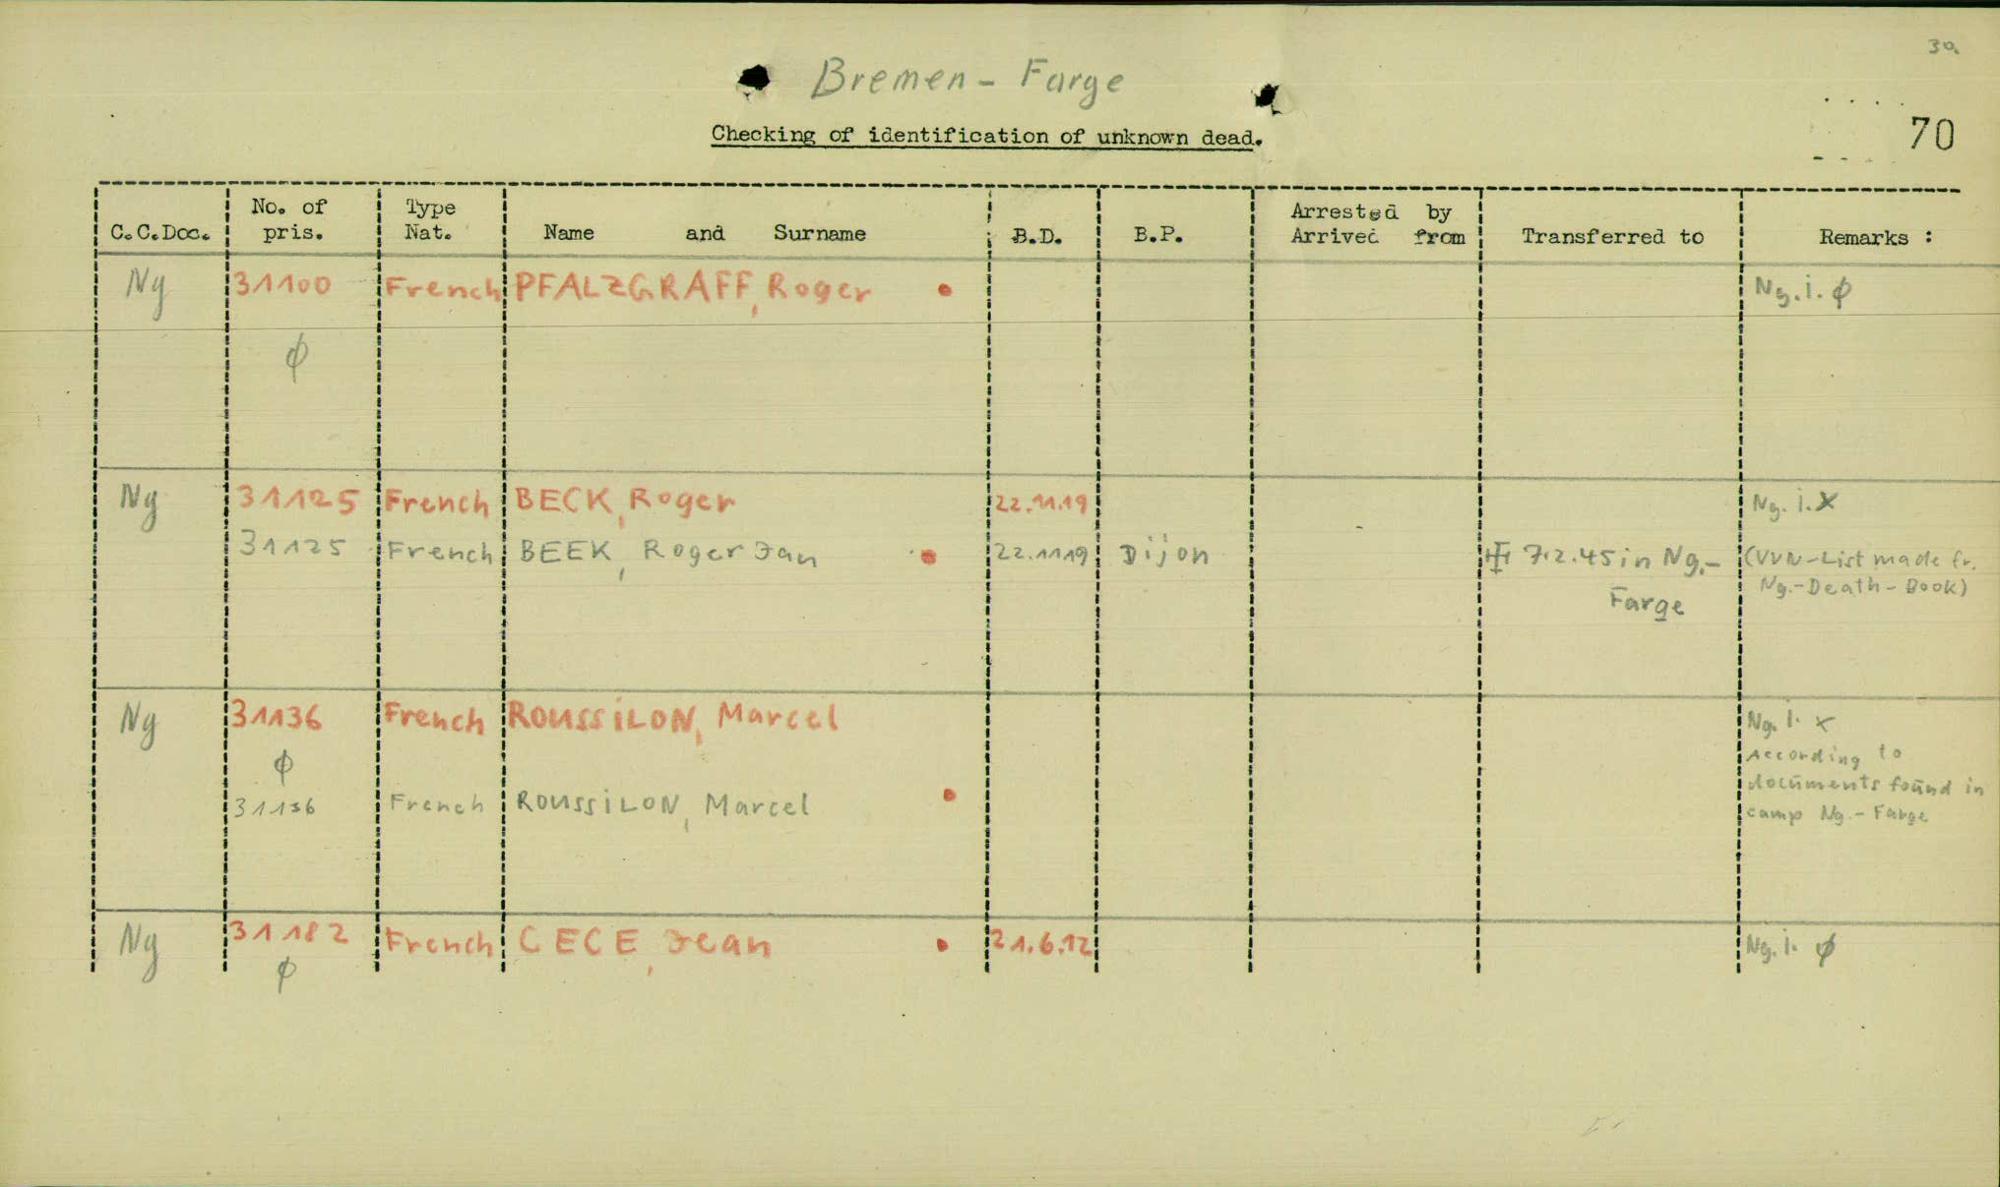 30
Bremen - Farge
Checking of identification of unknown dead.
70
C.C.Doc. No. of pris. Type Nat. Name and Surname B.D. B.P. Arrested by Arrived from Transferred to Remarks :
Ng 31100 French PFALZGRAFF, Roger Ng. i. ϕ
ϕ
Ng 31125 French BECK, Roger 22.11.19 Ng. i. X
31125 French BEEK, Roger Jan 22.11.19 Dijon 7.2.45 in Ng.- (VVN-List made fr.
Farge Ng.-Death-Book)
Ng 31136 French ROUSSILON, Marcel Ng. i. x
ϕ According to
31136 French ROUSSILON, Marcel documents found in
camp Ng.- Farge
Ng 31182 French CECE, Jean 21.6.12 Ng. i. ϕ
ϕ